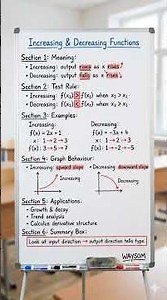 Increasing & Decreasing Functions
Section 1: Meaning:
• Increasing: output rises as x rises
• Decreasing: output falls as x rises
Section 2: Test Rule:
• Increasing: f(x₂) > f(x₁) when x₂ > x₁
• Decreasing: f(x₂) < f(x₁) when x₂ > x₁
Section 3: Examples:
Increasing: Decreasing:
f(x) = 2x + 1 f(x) = -3x + 4
x: 1→2→3 x: 1→2→3
f(x): 3→5→7
Section 4: Graph Behaviour:
• Increasing: upward slope • Decreasing: downward slope
Increasing Decreasing
Section 5: Applications:
• Growth & decay
• Trend analysis
• Calculus derivative structure
Section 6: Summary Box:
Look at input direction → output direction tells type
WAYSOM